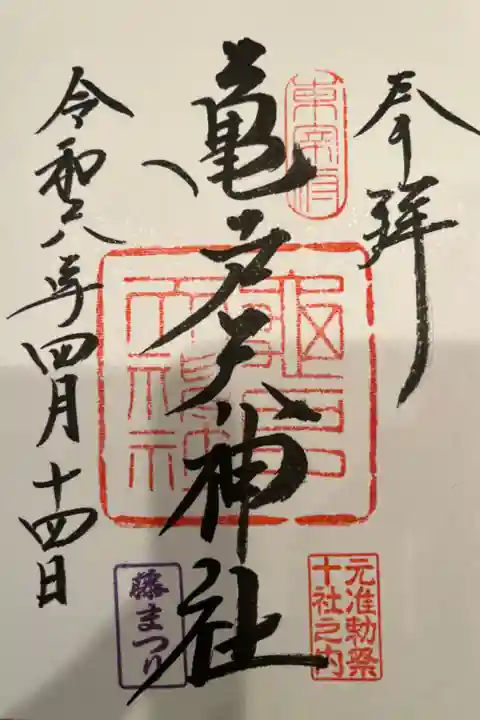 奉拝
東宰府
亀戸天神社
元准勅祭
十社之内
藤まつり
令和六年四月十四日